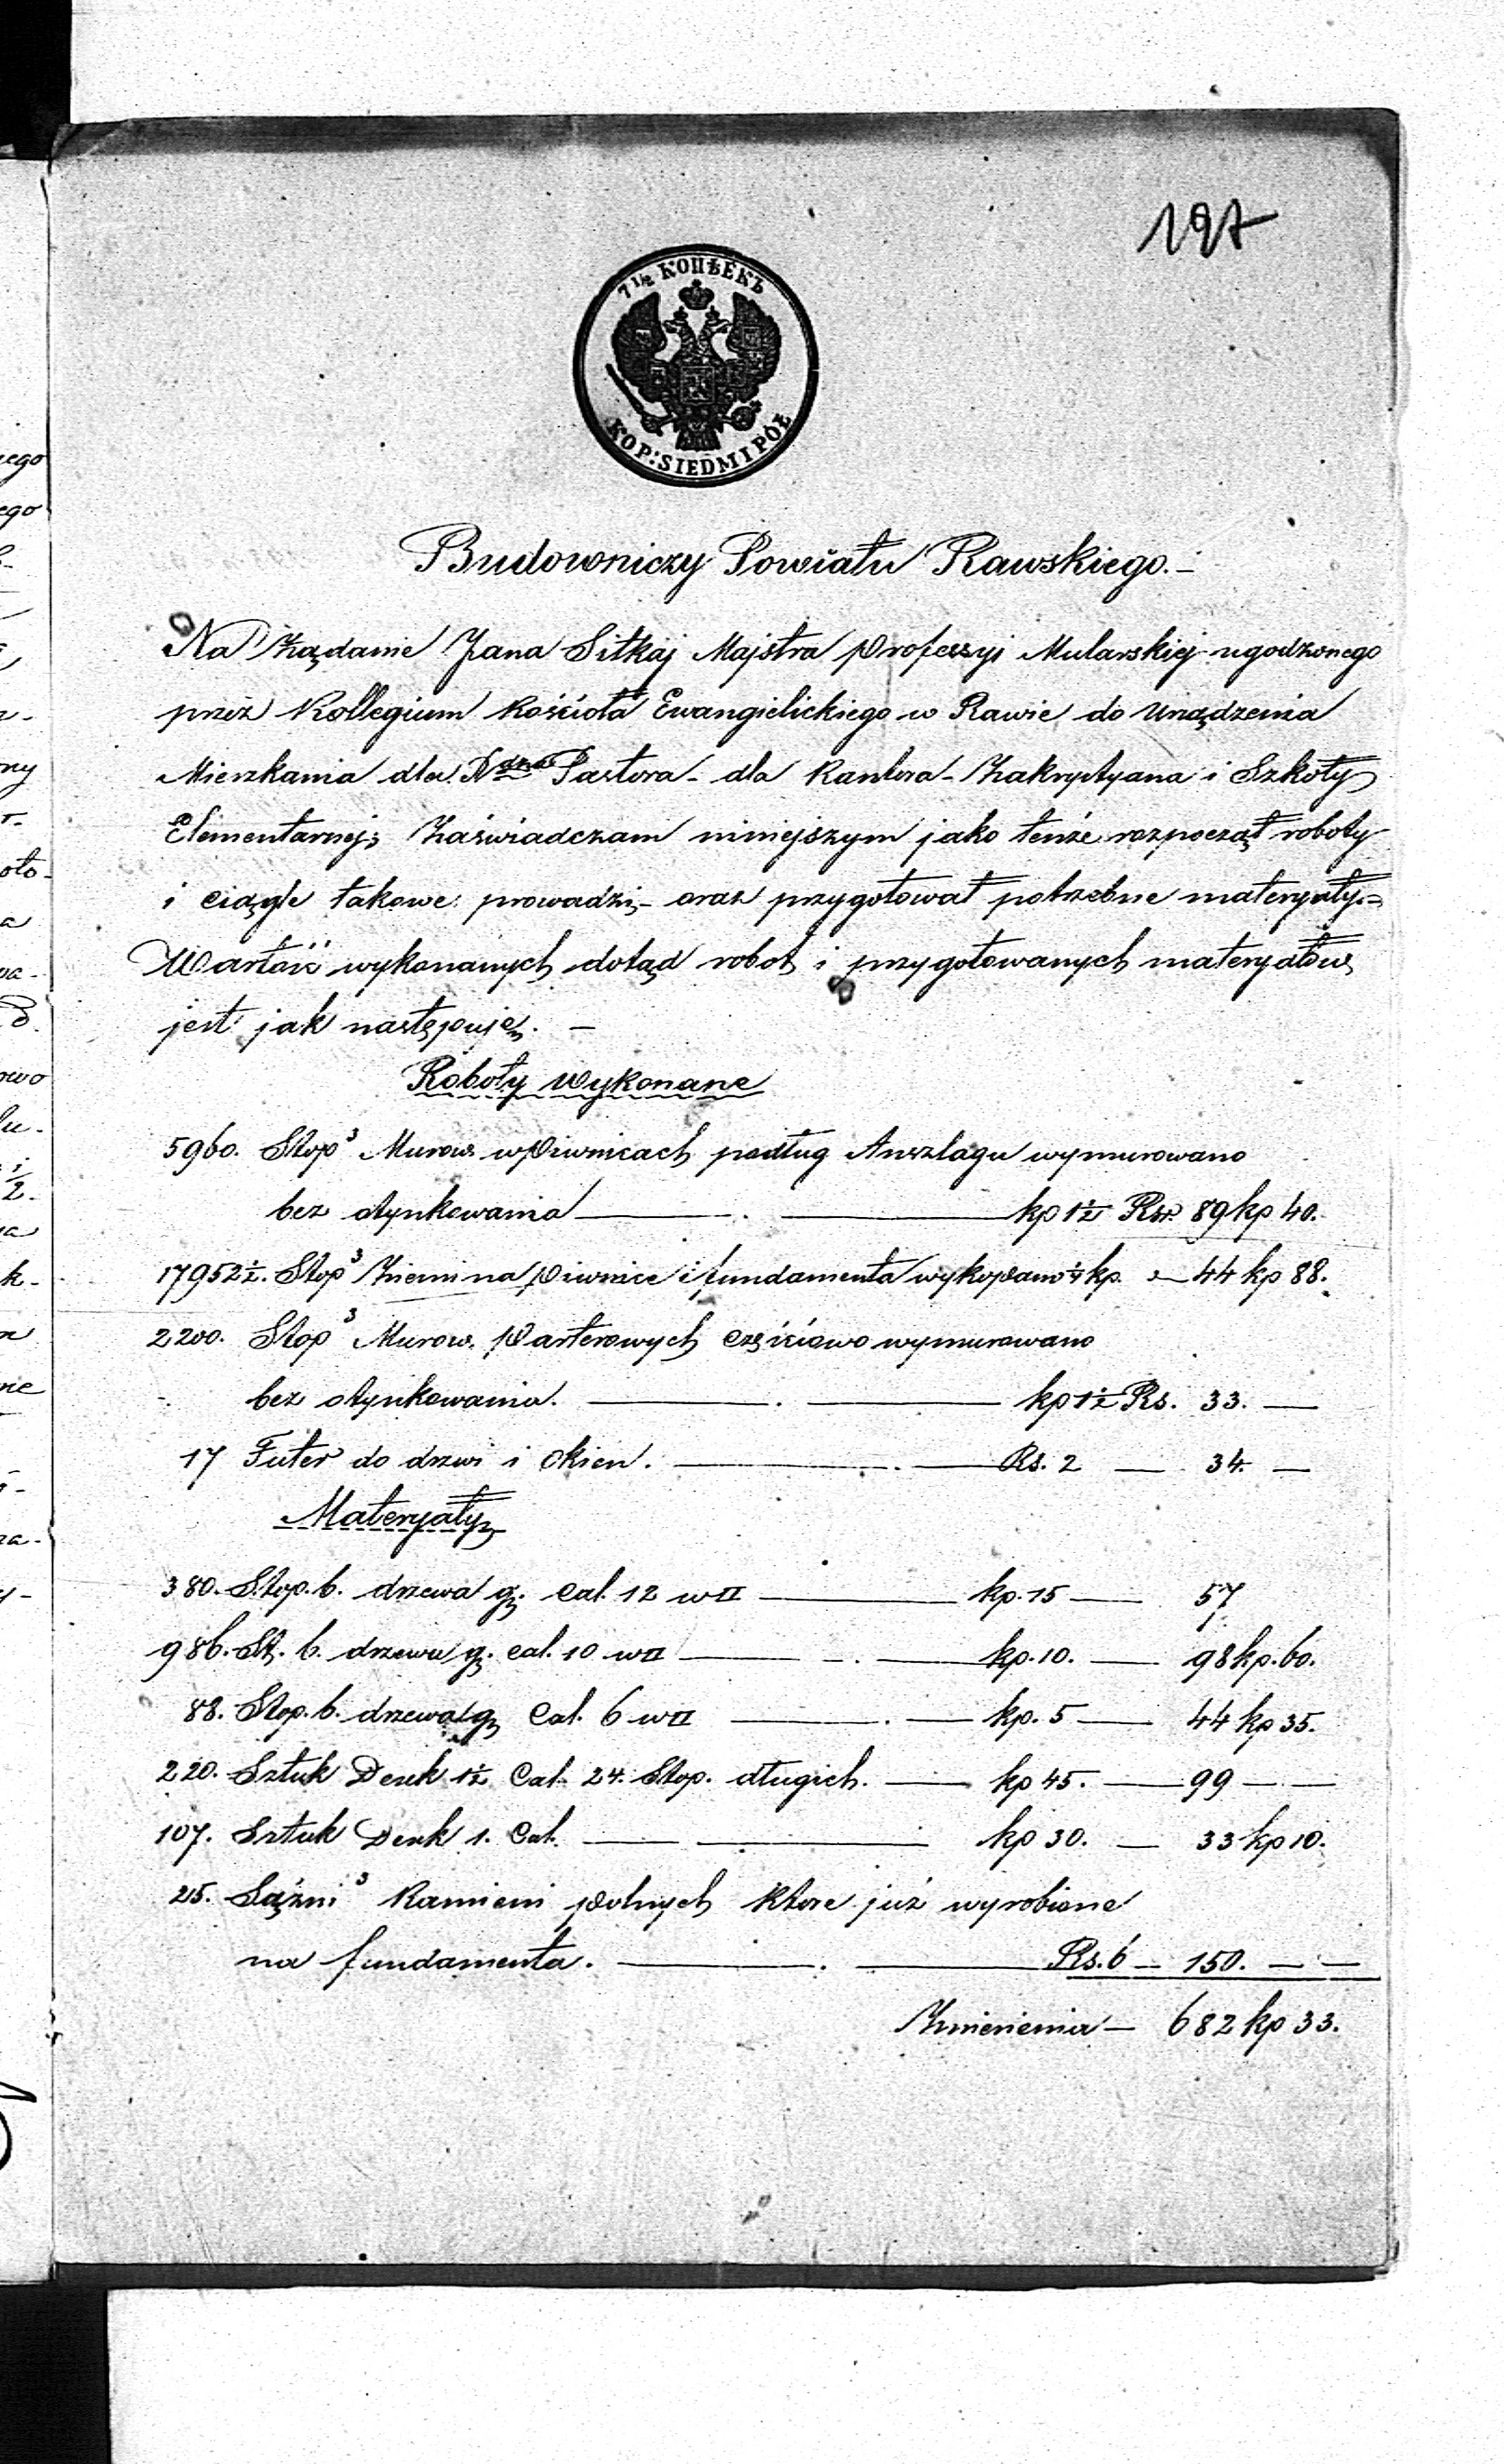 197
7 1/2 КОПѢЕКЪ
KOP: SIEDM I PÓŁ
Budowniczy Powiatu Rawskiego.-
Na Żądanie Jana Sitkaj Majstra Professyi Mularskiej ugodzonego
przez Kollegium Kościoła Ewangielickiego w Rawie do Urządzenia
Mieszkania dla Pastora - dla Kantora - Zakrystyana i Szkoły
Elementarnej; Zaświadczam niniejszym jako tenże rozpoczął roboty
i ciągle takowe prowadzi,- oraz przygotował potrzebne materyały.=
Wartość wykonanych dotąd robot i przygotowanych materyałów
jest jak następuje. -
Roboty Wykonane
5960. Stop³ Murow w Piwnicach podług Anszlagu wymurowano
bez otynkowania — . — kp 1 1/2 Rsr. 89 kp 40.
17952 1/2. Stop³ Ziemi na Piwnice i fundamenta wykopano 1/4 kp. — 44 kp 88.
2200. Stop³ Murow. Parterowych częściowo wymurowano
bez otynkowania. — . — kp 1 1/2 Rs. 33. —
17 Futer do drzwi i Okien. — . — Rs. 2 — 34. —
Materyały
380. Stop. b. drzewa g. Cal. 12 w □ — kp. 15 — 57
986. St. b. drzewa g. cal. 10 w □ — . — kp. 10. — 98 kp. 60.
88. Stop. b. drzewa g. Cal. 6 w □ — . — kp. 5 — 44 kp 35.
220. Sztuk Desek 1 1/2 Cal. 24. Stop. długich. — kp 45. — 99 — —
107. Sztuk Desek 1. Cal. — — kp 30. — 33 kp 10.
25. Sążni³ Kamieni polnych które już wyrobione
na fundamenta. — . — Rs. 6 — 150. — —
Zniesienia — 682 kp 33.